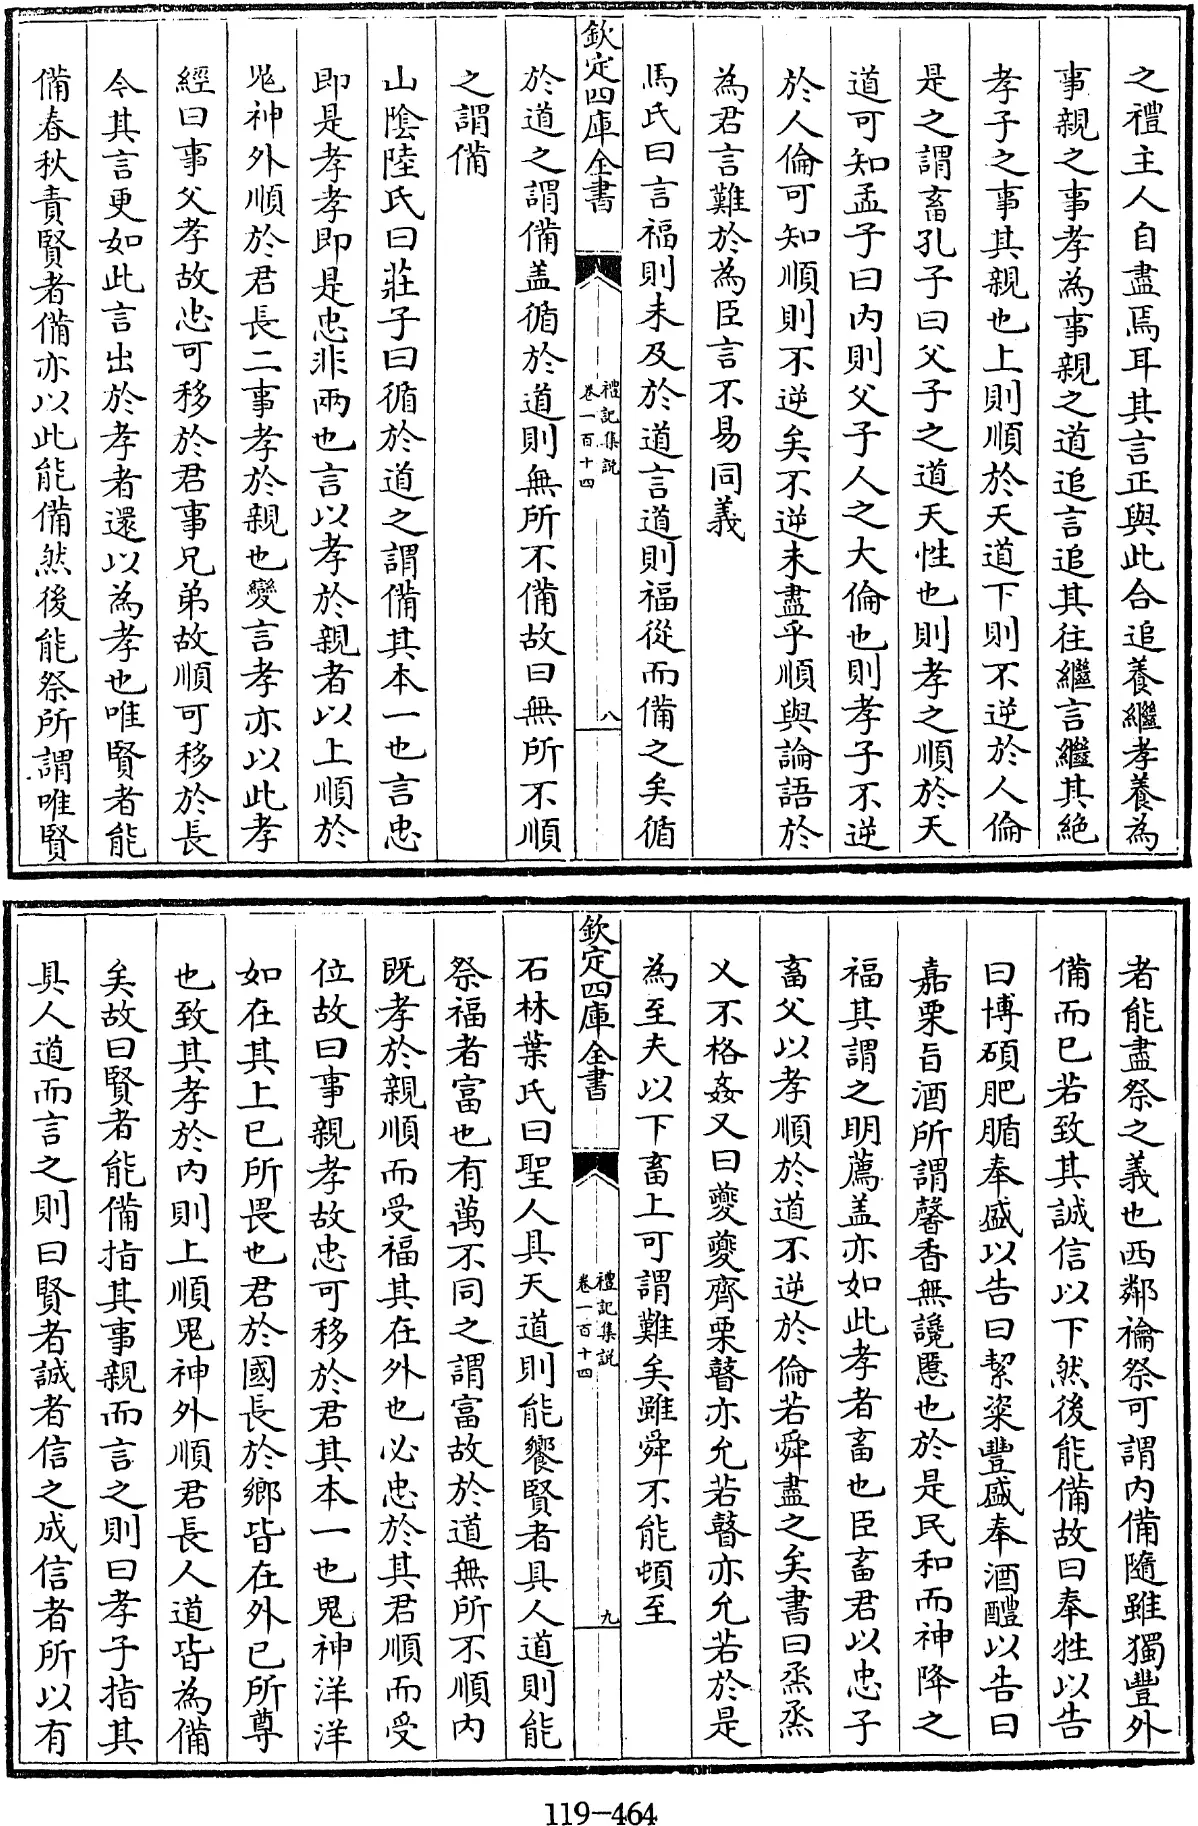 之禮主人自盡焉耳其言正與此合追養繼孝養為
事親之事孝為事親之道追言追其往繼言繼其絶
孝子之事其親也上則順於天道下則不逆於人倫
是之謂畜孔子曰父子之道天性也則孝之順於天
道可知孟子曰内則父子人之大倫也則孝子不逆
於人倫可知順則不逆矣不逆未盡乎順與論語於
為君言難於為臣言不易同義
馬氏曰言福則未及於道言道則福從而備之矣循
欽定四庫全書
禮記集説
卷一百十四
八
於道之謂備盖循於道則無所不備故曰無所不順
之謂備
山隂陸氏曰莊子曰循於道之謂備其本一也言忠
即是孝孝即是忠非兩也言以孝於親者以上順於
鬼神外順於君長二事孝於親也變言孝亦以此孝
經曰事父孝故忠可移於君事兄弟故順可移於長
令其言更如此言出於孝者還以為孝也唯賢者能
備春秋責賢者備亦以此能備然後能祭所謂唯賢
者能盡祭之義也西鄰禴祭可謂内備隨雖獨豐外
備而已若致其誠信以下然後能備故曰奉牲以告
曰博碩肥腯奉盛以告曰絜粢豐盛奉酒醴以告曰
嘉栗旨酒所謂馨香無讒慝也於是民和而神降之
福其謂之明薦盖亦如此孝者畜也臣畜君以忠子
畜父以孝順於道不逆於倫若舜盡之矣書曰烝烝
乂不格姦又曰夔夔齊栗瞽亦允若瞽亦允若於是
為至夫以下畜上可謂難矣雖舜不能頓至
欽定四庫全書
禮記集説
卷一百十四
九
石林葉氏曰聖人具天道則能饗賢者具人道則能
祭福者富也有萬不同之謂富故於道無所不順内
既孝於親順而受福其在外也必忠於其君順而受
位故曰事親孝故忠可移於君其本一也鬼神洋洋
如在其上已所畏也君於國長於鄉皆在外已所尊
也致其孝於内則上順鬼神外順君長人道皆為備
矣故曰賢者能備指其事親而言之則曰孝子指其
具人道而言之則曰賢者誠者信之成信者所以有
119-464